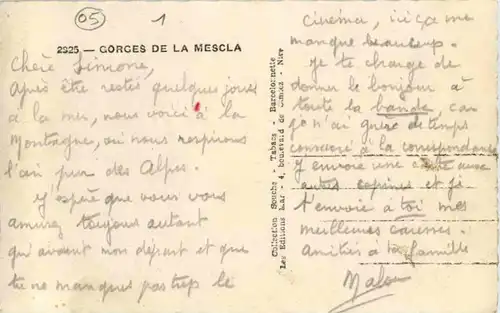 05
1
2325. — GORGES DE LA MESCLA
Chère Simone,
Après être restés quelques jours
à la mer, nous voici à la
Montagne, où nous respirons
l'air pur des Alpes.
J'espère que vous vous
amusez toujours autant
qu'avant mon départ et que
tu ne manques pas trop le
Collection Souche - Tabacs - Barcelonnette
Les Editions Lar - 4, boulevard de Cimiez - Nice
cinéma, ici ça me
manque beaucoup.
Je te charge de
donner le bonjour à
toute la bande car
je n'ai guère de temps
consacré à la correspondance
J'envoie une carte aux
autres copines et je
t'envoie à toi mes
meilleures caresses.
Amitiés à ta famille
Malou